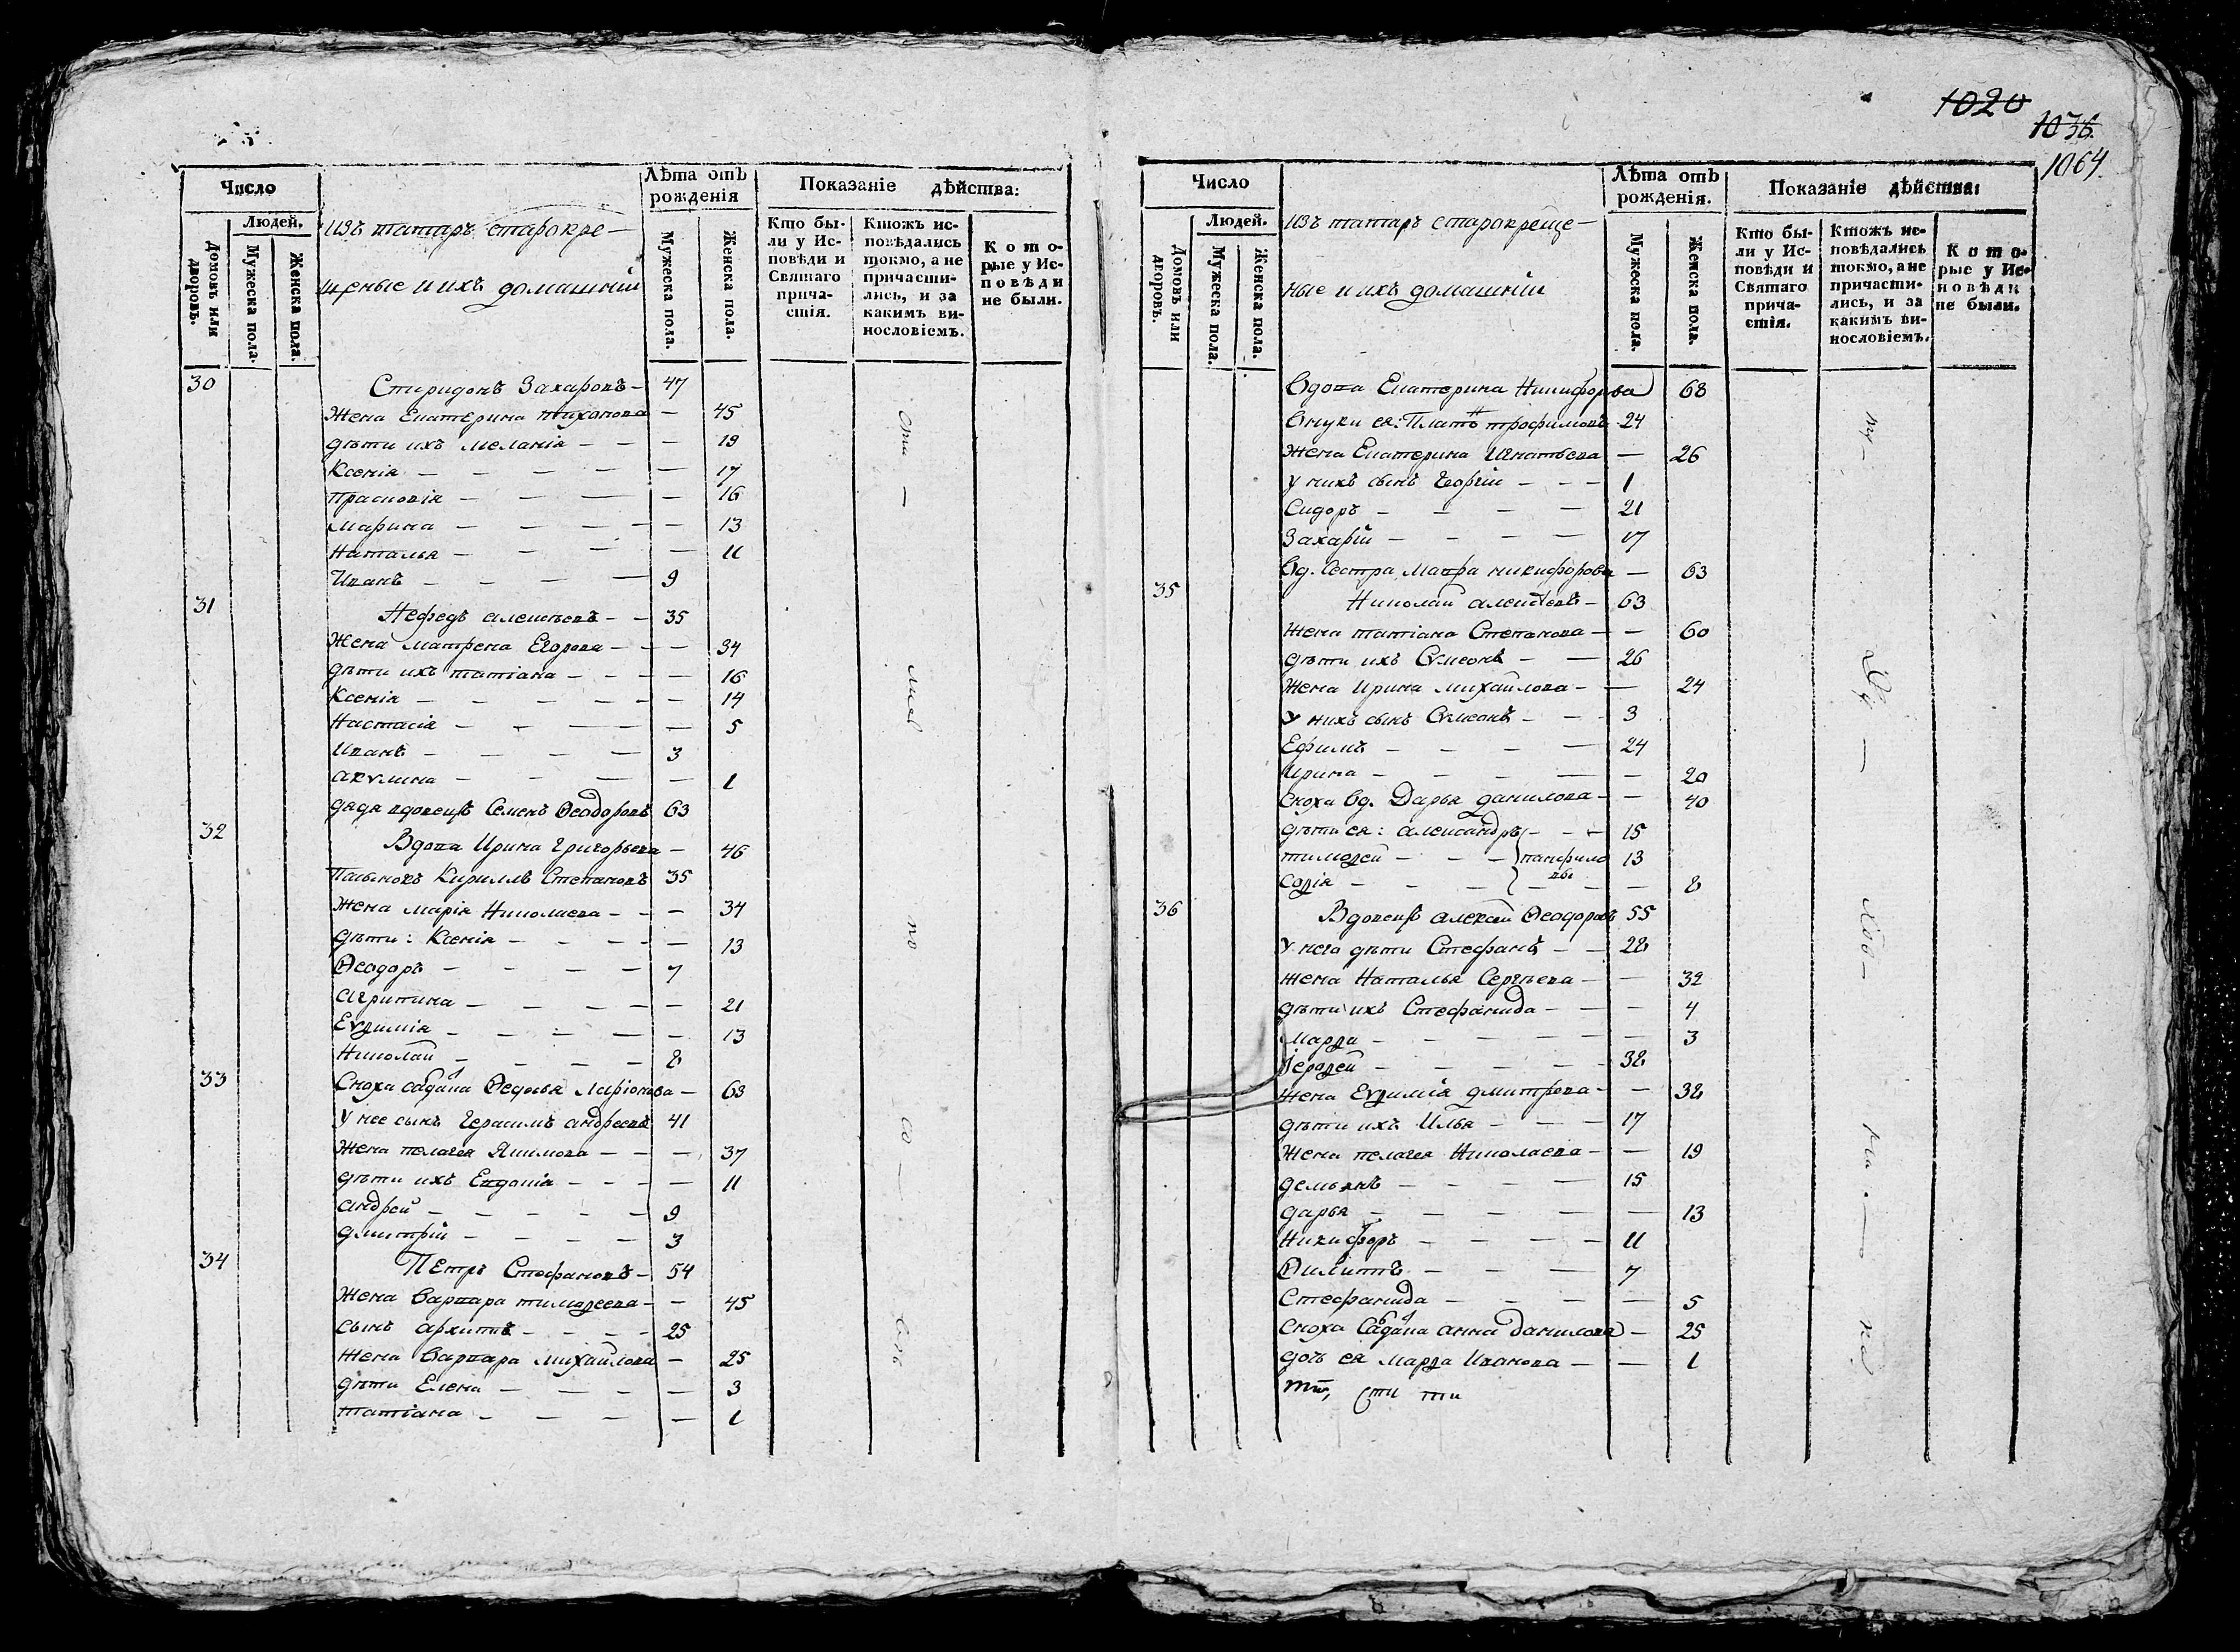 1020
1036.
1064.
Число
Людей.
Домовъ или дворовъ.
Мужеска пола.
Женска пола.
Изъ татаръ старокре-
щеные и ихъ домашній
Лѣта отъ рожденія
Мужеска пола.
Женска пола.
Показаніе дѣйства:
Кто бы-
ли у Ис-
повѣди и
Святаго
прича-
стія.
Ктожъ ис-
повѣдались
токмо, а не
причасти-
лись, и за
какимъ ви-
нословіемъ.
Кото-
рые у Ис-
повѣди
не были.
30 Спиридонъ Захаровъ - 47
Жена Екатерина тиханова - 45
дѣти ихъ меланія - - - 19
Ксенія - - - - - 17
Прасковія - - - - 16
Марина - - - - - 13
Наталья - - - - - 11
Иванъ - - - - 9
31 Нефедъ алексѣевъ - - 35
Жена матрена Егорова - - - 34
дѣти ихъ татіана - - - - 16
Ксенія - - - - - - 14
Настасія - - - - - 5
Иванъ - - - - 3
акѵлина - - - - 1
дядя вдовецъ Семенъ Ѳеодоровъ 63
32 Вдова Ирина григорьева - 46
Пасынокъ Кириллъ Степановъ 35
Жена марія Николаева - - - 34
дѣти: Ксенія - - - - - 13
Ѳеодоръ - - - - - 7
агрипина - - - - - 21
Еѵѳимія - - - - - 13
Николай - - - - - 8
33 Сноха салдатка Ѳедосья Ларіонова - 63
У нее сынъ Герасимъ андреевъ 41
Жена пелагея Якимова - - - 37
дѣти ихъ Евдокія - - - - 11
андрей - - - - - 9
дмитрій - - - - 3
34 Петръ Стефановъ - 54
Жена Варвара тимоѳеева - - 45
сынъ архипъ - - - - 25
жена Варвара михайлова - 25
дѣти Елена - - - - - 3
татіана - - - - 1
Число
Людей.
Домовъ или дворовъ.
Мужеска пола.
Женска пола.
Изъ татаръ старокреще-
ные и ихъ домашніи
Лѣта отъ рожденія.
Мужеска пола.
Женска пола.
Показаніе дѣйства:
Кто бы-
ли у Ис-
повѣди и
Святаго
прича-
стія.
Ктожъ ис-
повѣдались
токмо, а не
причасти-
лись, и за
какимъ ви-
нословіемъ.
Кото-
рые у Ис-
повѣди
не были.
Вдова Екатерина Никифорова 68
Внуки ея: Платонъ трофимовъ 24
Жена Екатерина Игнатьева - 26
у нихъ сынъ Георгій - - - 1
Сидоръ - - - - 21
Захарій - - - - 17
Вд. Сестра Мавра никифорова - 63
35 Николай алексѣевъ - 63
Жена татіана Степанова - - 60
дѣти ихъ Сѵмеонъ - - 26
Жена Ирина михайлова - - 24
У нихъ сынъ Сѵмеонъ - - - 3
Ефимъ - - - - 24
Ирина - - - - - 20
Сноха вд. Дарья данилова - - 40
дѣти ея: александръ - - - 15
тимоѳей - - - панфило 13
Софія - - - вы - - 8
36 Вдовецъ алексѣй Ѳеодоровъ 55
У него дѣти Стефанъ - - 28
жена Наталья Сергѣева - - 32
дѣти ихъ Стефанида - - - 4
Марѳа - - - - - - 3
Іероѳей - - - - - 38
Жена Еѵѳимія дмитрева - - 38
дѣти ихъ Илья - - - 17
Жена пелагея Николаева - - 19
демьянъ - - - - 15
дарья - - - - - 13
Никифоръ - - - - 11
Ѳилиппъ - - - - 7
Стефанида - - - - - 5
Сноха салдатка анна данилова - 25
дочь ея Марѳа Иванова - - 1